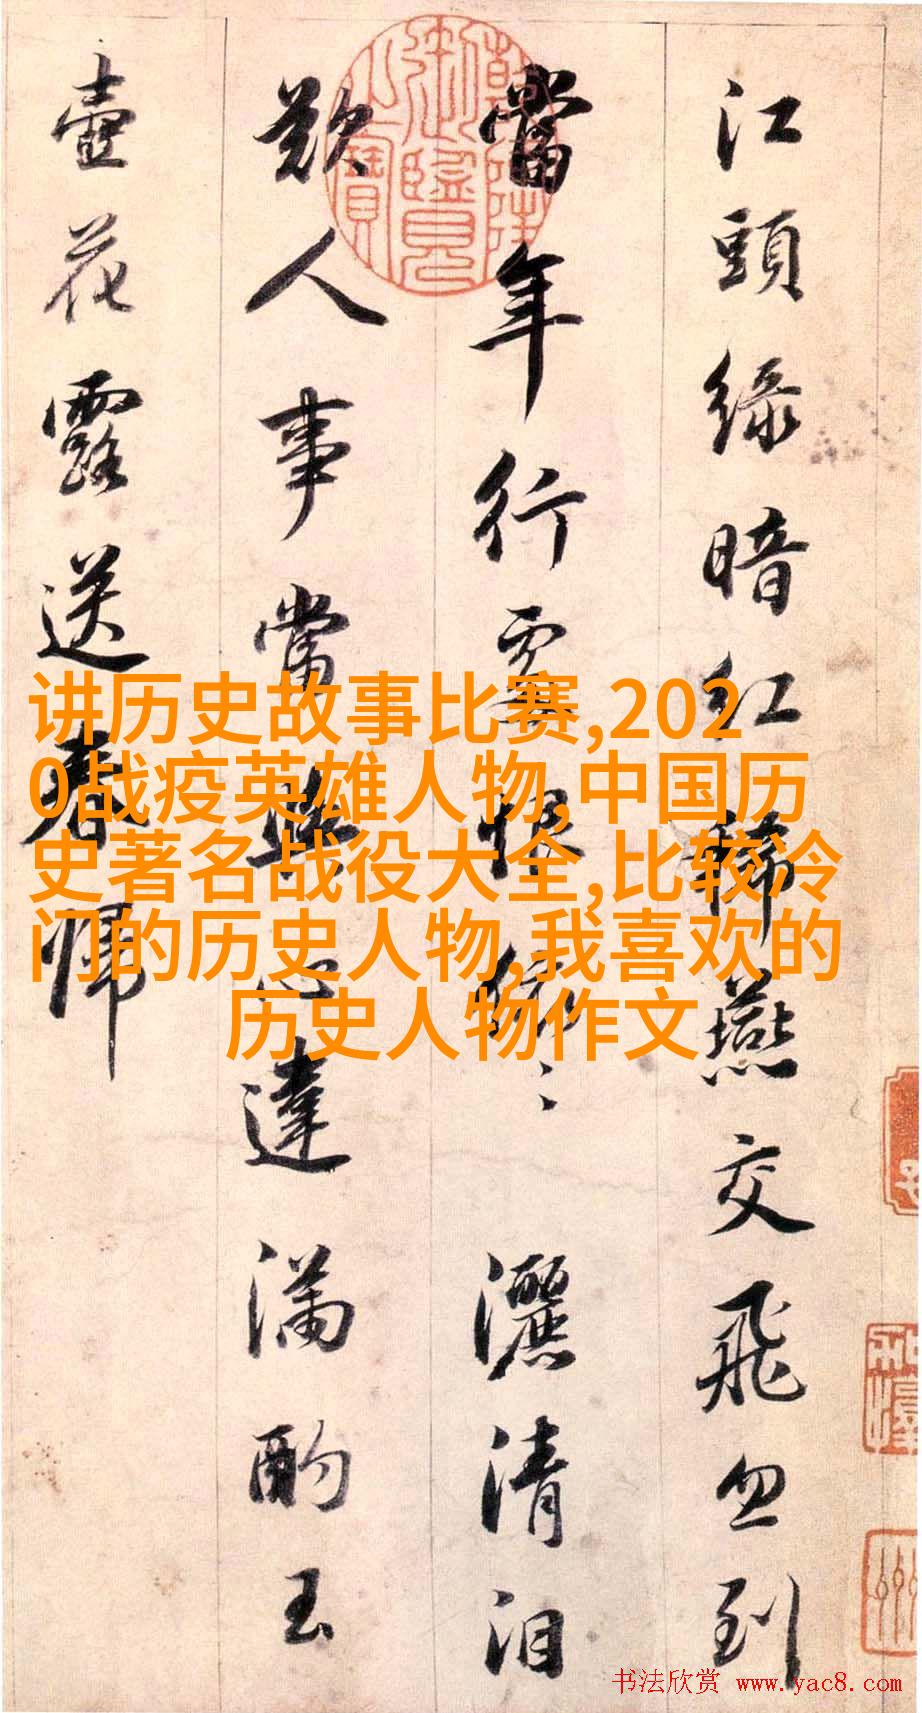 江頭綠暗紅稀燕交飛忽到
當年行處恨依〻灑清泪
歎人事當與心違滿酌玉
壺花露送春歸
乾隆御覽之寶
讲历史故事比赛,202
0战疫英雄人物,中国历
史著名战役大全,比较冷
门的历史人物,我喜欢的
历史人物作文
书法欣赏 www.yac8.com